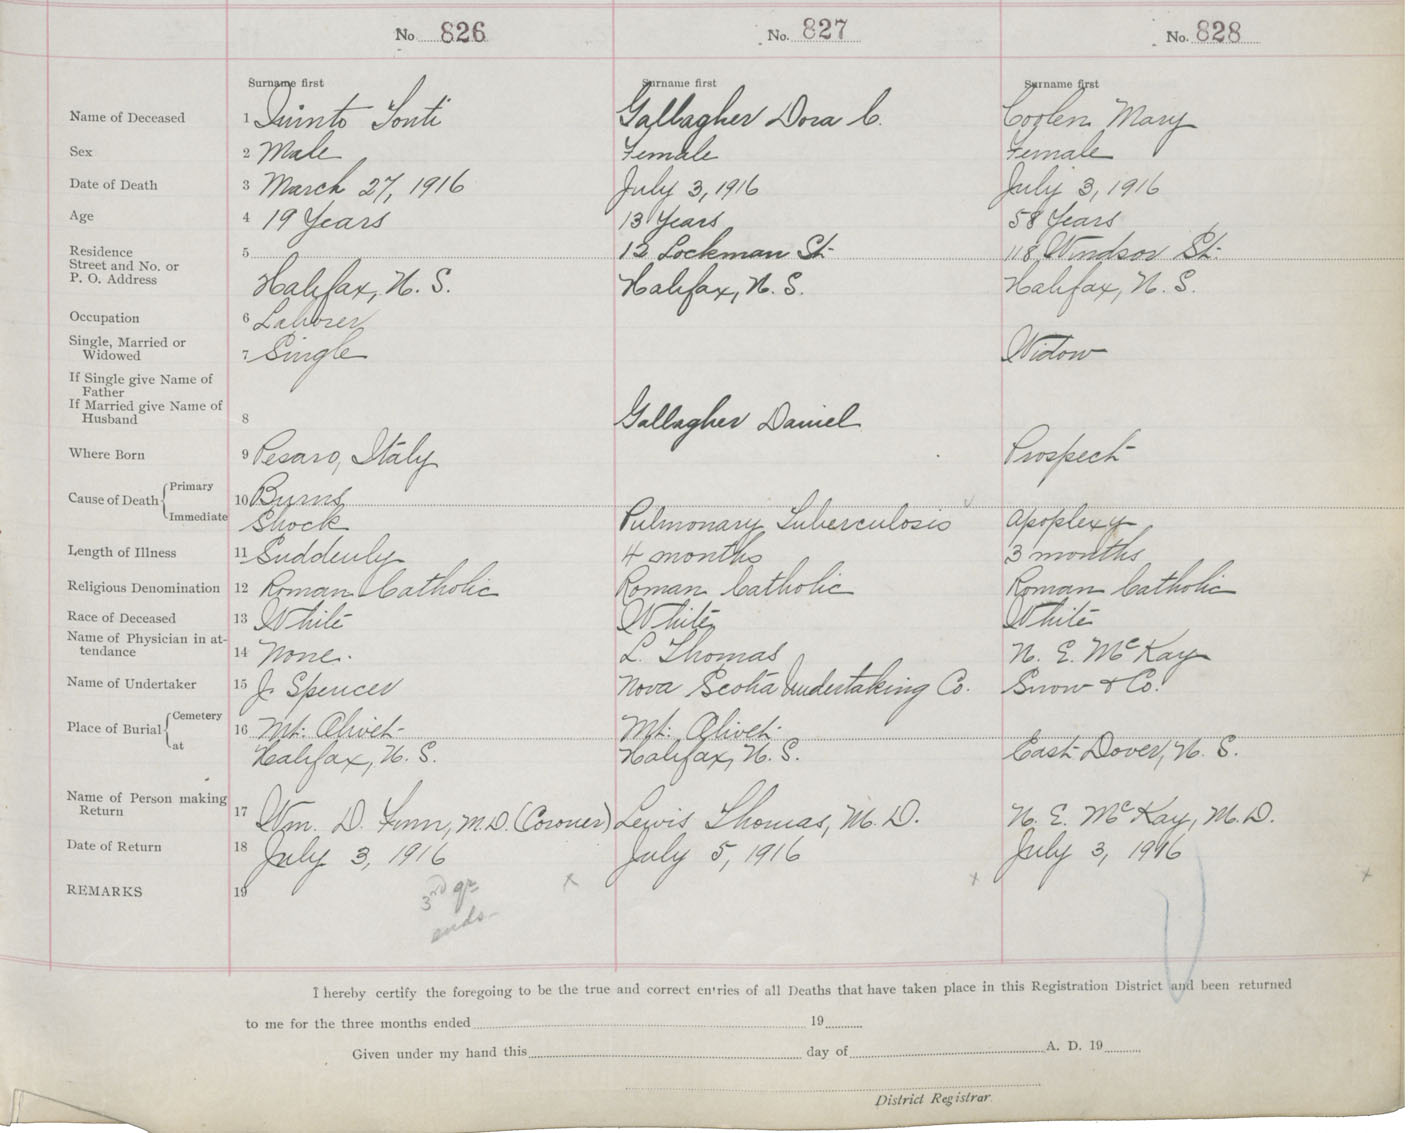 No. 826 No. 827 No. 828
Surname first Surname first Surname first
Name of Deceased 1 Quinto Tonti Gallagher Dora C. Coolen Mary
Sex 2 Male Female Female
Date of Death 3 March 27, 1916 July 3, 1916 July 3, 1916
Age 4 19 Years 13 Years 58 Years
Residence 5 12 Lockman St. 118 Windsor St.
Street and No. or
P. O. Address Halifax, N. S. Halifax, N. S. Halifax, N. S.
Occupation 6 Laborer
Single, Married or
Widowed 7 Single Widow
If Single give Name of
Father
If Married give Name of
Husband 8 Gallagher Daniel
Where Born 9 Pesaro, Italy Prospect
Cause of Death Primary 10 Burns
Immediate Shock Pulmonary Tuberculosis Apoplexy
Length of Illness 11 Suddenly 4 months 3 months
Religious Denomination 12 Roman Catholic Roman Catholic Roman Catholic
Race of Deceased 13 White White White
Name of Physician in at-
tendance 14 None. L. Thomas N. E. McKay
Name of Undertaker 15 J. Spencer Nova Scotia Undertaking Co. Snow & Co.
Place of Burial Cemetery 16 Mt. Olivet Mt. Olivet
at Halifax, N. S. Halifax, N. S. East Dover, N. S.
Name of Person making
Return 17 Wm. D. Finn, M.D. (Coroner) Lewis Thomas, M. D. N. E. McKay, M.D.
Date of Return 18 July 3, 1916 July 5, 1916 July 3, 1916
REMARKS 19 3rd qr x x x
ends
I hereby certify the foregoing to be the true and correct entries of all Deaths that have taken place in this Registration District and been returned
to me for the three months ended 19
Given under my hand this day of A. D. 19
District Registrar.